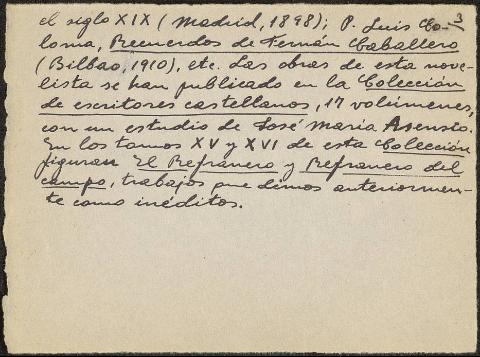 3
el siglo XIX (Madrid, 1898); P. Luis Co-
loma, Recuerdos de Fernán Caballero
(Bilbao, 1910), etc. Las obras de esta nove-
lista se han publicado en la Colección
de escritores castellanos, 17 volúmenes,
con un estudio de José María Asensio.
En los tomos XV y XVI de esta Colección
figuran El Refranero y Refranero del
campo, trabajos que dimos anteriormen-
te como inéditos.